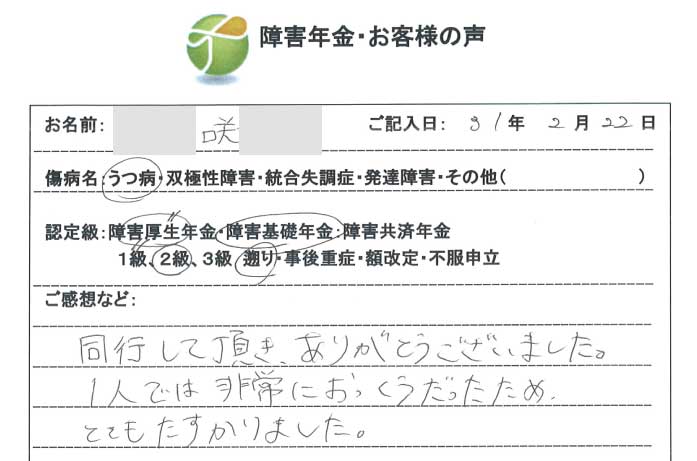 障害年金・お客様の声
お名前： 咲 ご記入日： 31年 2月 22日
傷病名：うつ病・双極性障害・統合失調症・発達障害・その他（ ）
認定級：障害厚生年金・障害基礎年金・障害共済年金
1級、2級、3級 遡り・事後重症・額改定・不服申立
ご感想など：
同行して頂き、ありがとうございました。
1人では非常におっくうだったため、
とてもたすかりました。